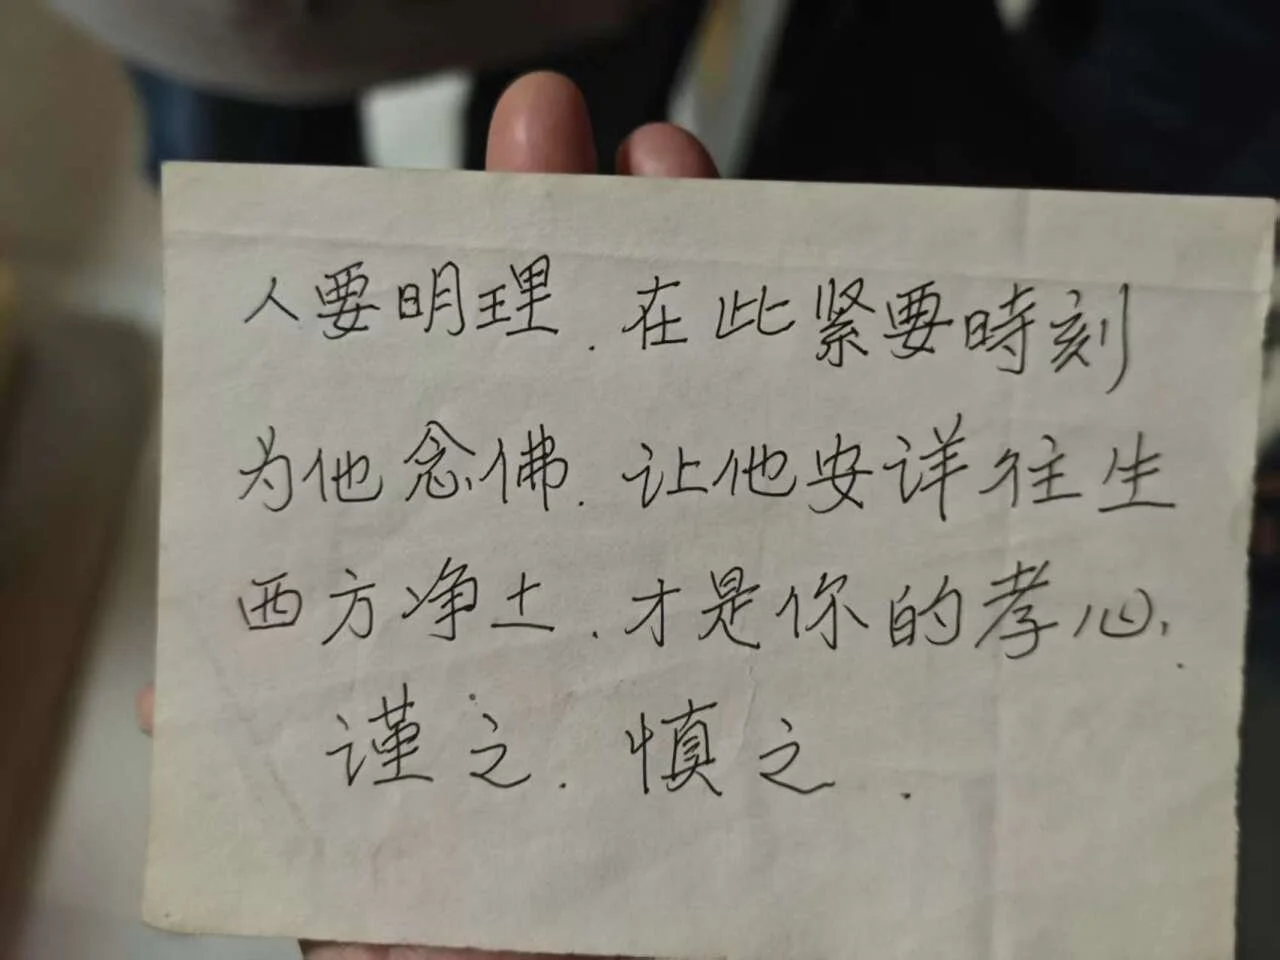 人要明理.在此紧要時刻
为他念佛.让他安详往生
西方净土.才是你的孝心.
谨之.慎之.